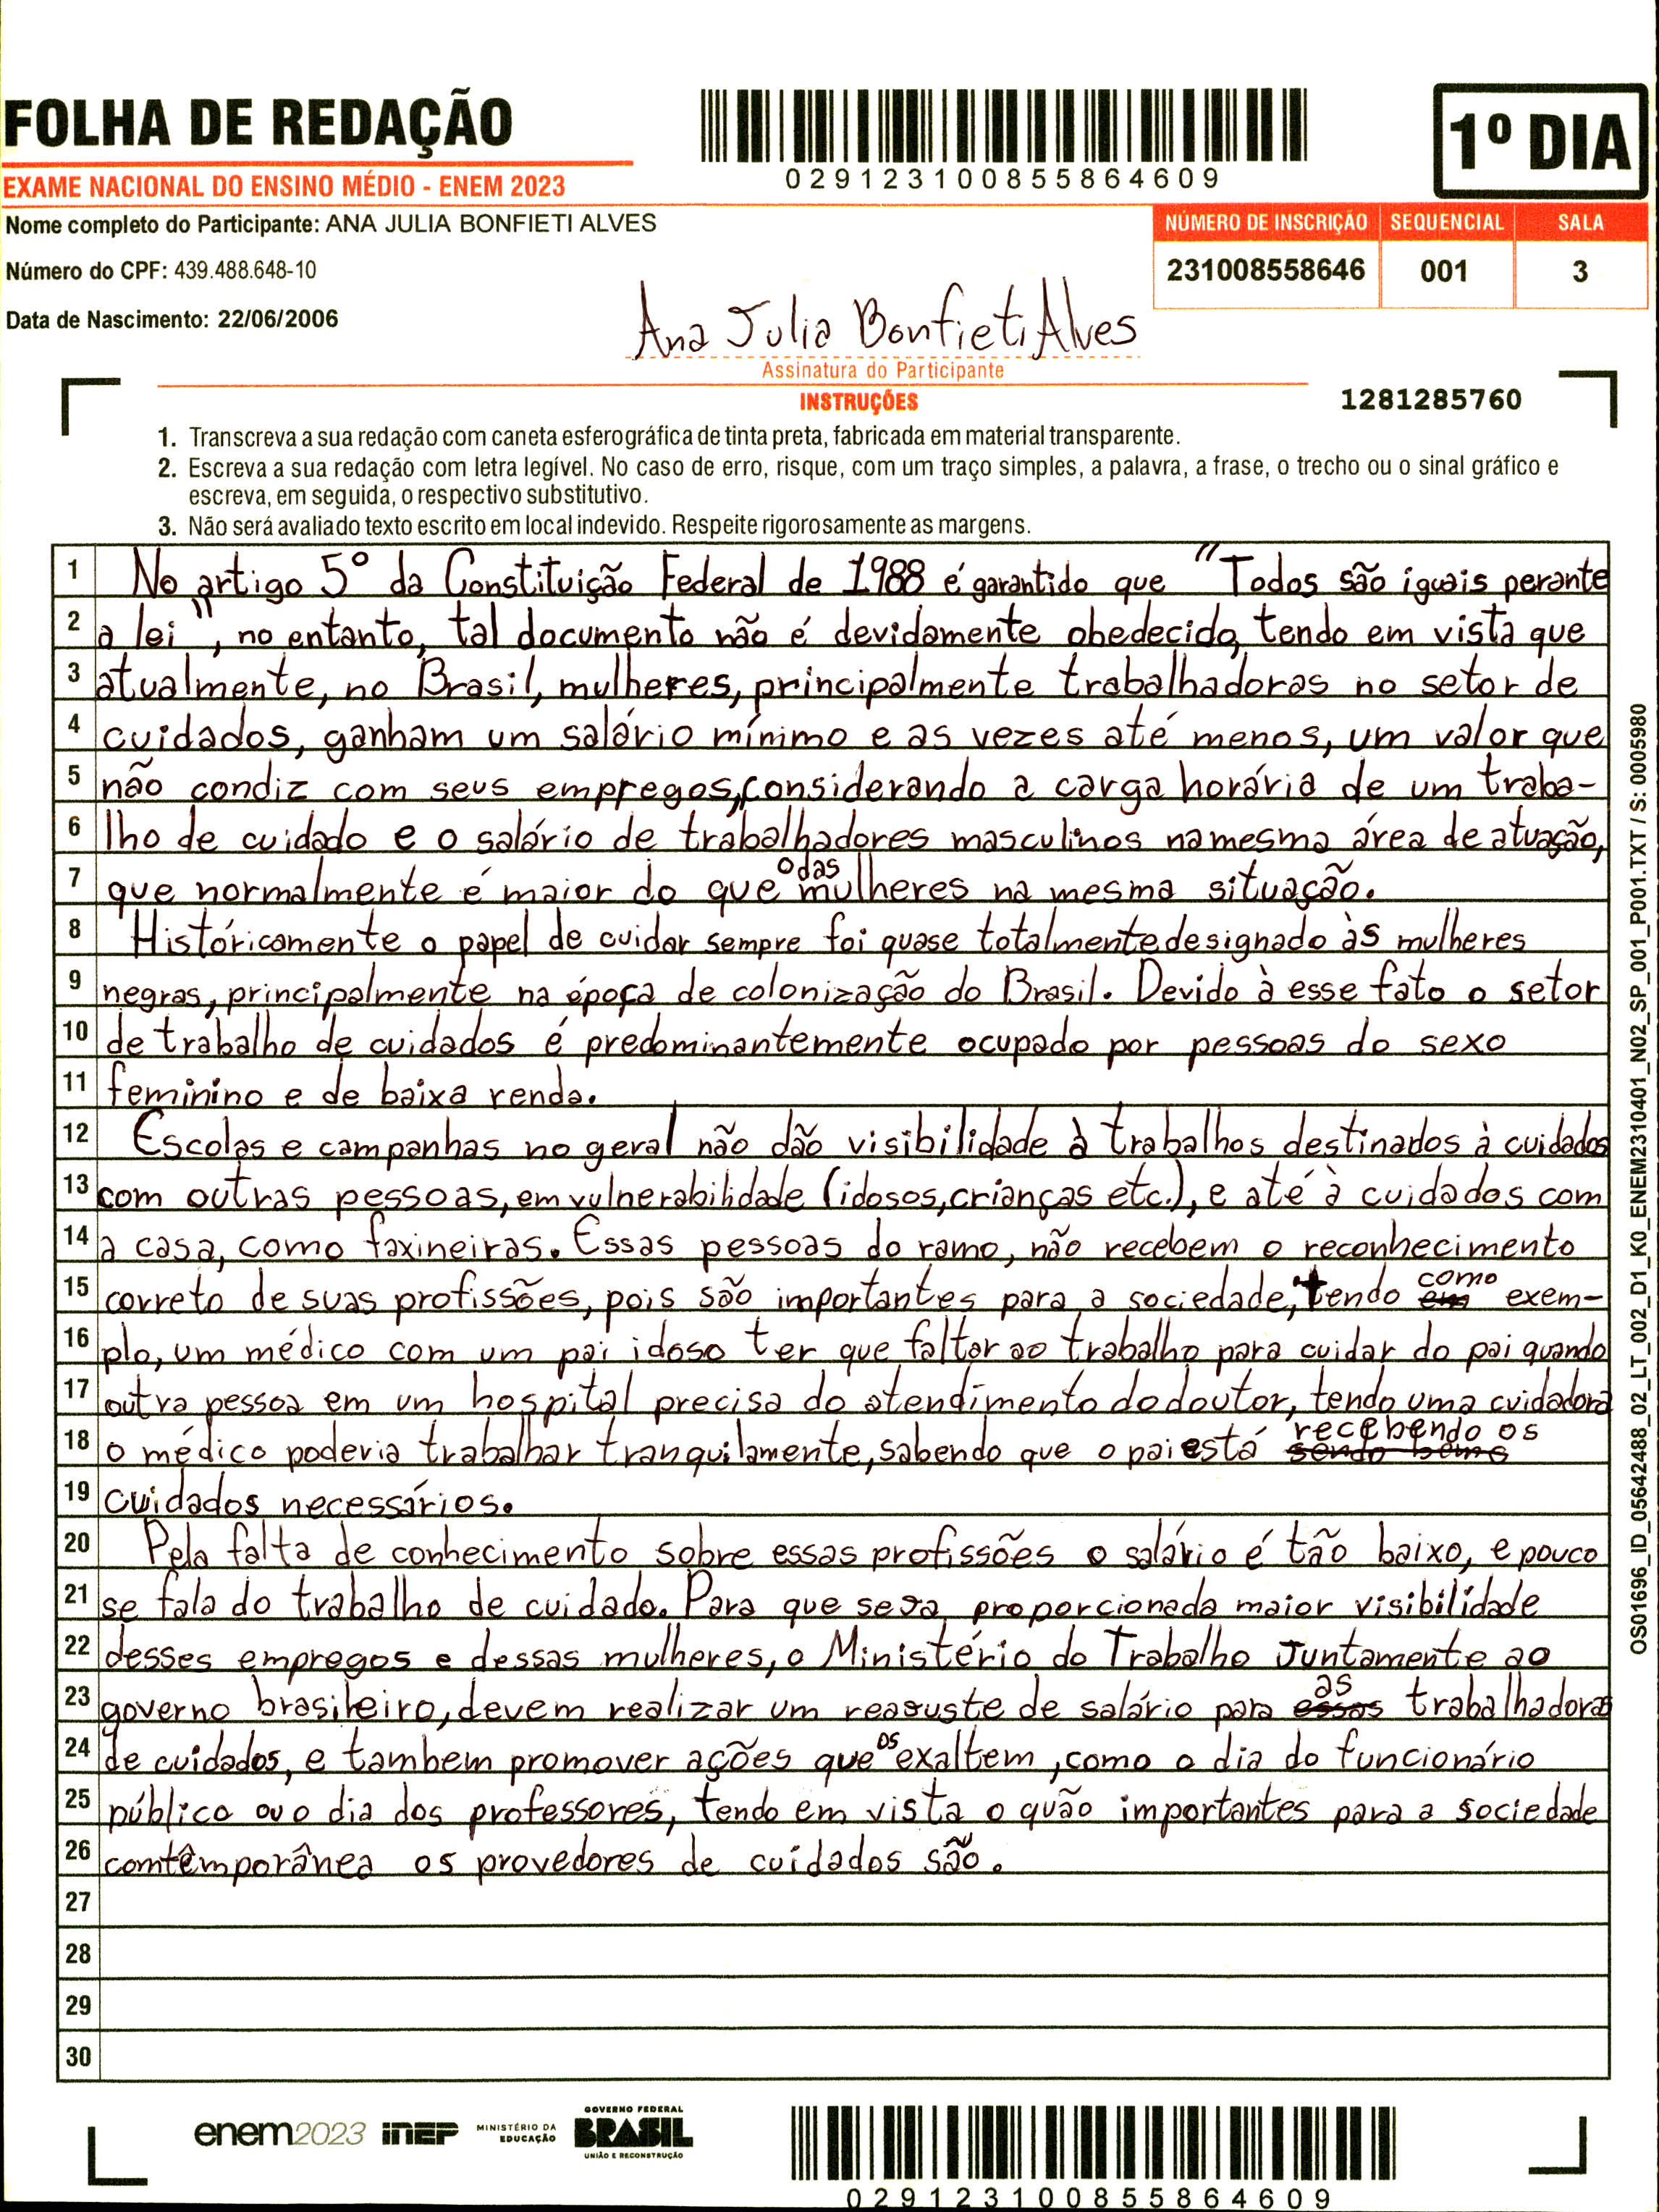 FOLHA DE REDAÇÃO
029123100855864609
1º DIA
EXAME NACIONAL DO ENSINO MÉDIO - ENEM 2023
Nome completo do Participante: ANA JULIA BONFIETI ALVES
NÚMERO DE INSCRIÇÃO SEQUENCIAL SALA
Número do CPF: 439.488.648-10
231008558646 001 3
Data de Nascimento: 22/06/2006
Ana Julia Bonfieti Alves
Assinatura do Participante
INSTRUÇÕES
1281285760
1. Transcreva a sua redação com caneta esferográfica de tinta preta, fabricada em material transparente.
2. Escreva a sua redação com letra legível. No caso de erro, risque, com um traço simples, a palavra, a frase, o trecho ou o sinal gráfico e
escreva, em seguida, o respectivo substitutivo.
3. Não será avaliado texto escrito em local indevido. Respeite rigorosamente as margens.
1 No artigo 5º da Constituição Federal de 1988 é garantido que "Todos são iguais perante
2 a lei", no entanto, tal documento não é devidamente obedecido, tendo em vista que
3 atualmente, no Brasil, mulheres, principalmente trabalhadoras no setor de
4 cuidados, ganham um salário mínimo e as vezes até menos, um valor que
5 não condiz com seus empregos, considerando a carga horária de um traba-
6 lho de cuidado e o salário de trabalhadores masculinos na mesma área de atuação,
7 que normalmente é maior do que o das mulheres na mesma situação.
8 Históricamente o papel de cuidar sempre foi quase totalmente designado às mulheres
9 negras, principalmente na época de colonização do Brasil. Devido à esse fato o setor
10 de trabalho de cuidados é predominantemente ocupado por pessoas do sexo
11 feminino e de baixa renda.
12 Escolas e campanhas no geral não dão visibilidade à trabalhos destinados à cuidados
13 com outras pessoas, em vulnerabilidade (idosos, crianças etc.), e até à cuidados com
14 a casa, como faxineiras. Essas pessoas do ramo, não recebem o reconhecimento
15 correto de suas profissões, pois são importantes para a sociedade, tendo em como exem-
16 plo, um médico com um pai idoso ter que faltar ao trabalho para cuidar do pai quando
17 outra pessoa em um hospital precisa do atendimento do doutor, tendo uma cuidadora
18 o médico poderia trabalhar tranquilamente, sabendo que o pai está recebendo os
19 cuidados necessários.
20 Pela falta de conhecimento sobre essas profissões o salário é tão baixo, e pouco
21 se fala do trabalho de cuidado. Para que seja proporcionada maior visibilidade
22 desses empregos e dessas mulheres, o Ministério do Trabalho Juntamente ao
23 governo brasileiro, devem realizar um reajuste de salário para essas as trabalhadoras
24 de cuidados, e tambem promover ações que os exaltem, como o dia do funcionário
25 público ou o dia dos professores, tendo em vista o quão importantes para a sociedade
26 comtêmporânea os provedores de cuidados são.
27
28
29
30
OS01696_ID_05642488_02_LT_002_D1_K0_ENEM2310401_N02_SP_001_P001.TXT / S: 0005980
enem2023 inep MINISTÉRIO DA EDUCAÇÃO GOVERNO FEDERAL BRASIL UNIÃO E RECONSTRUÇÃO
029123100855864609